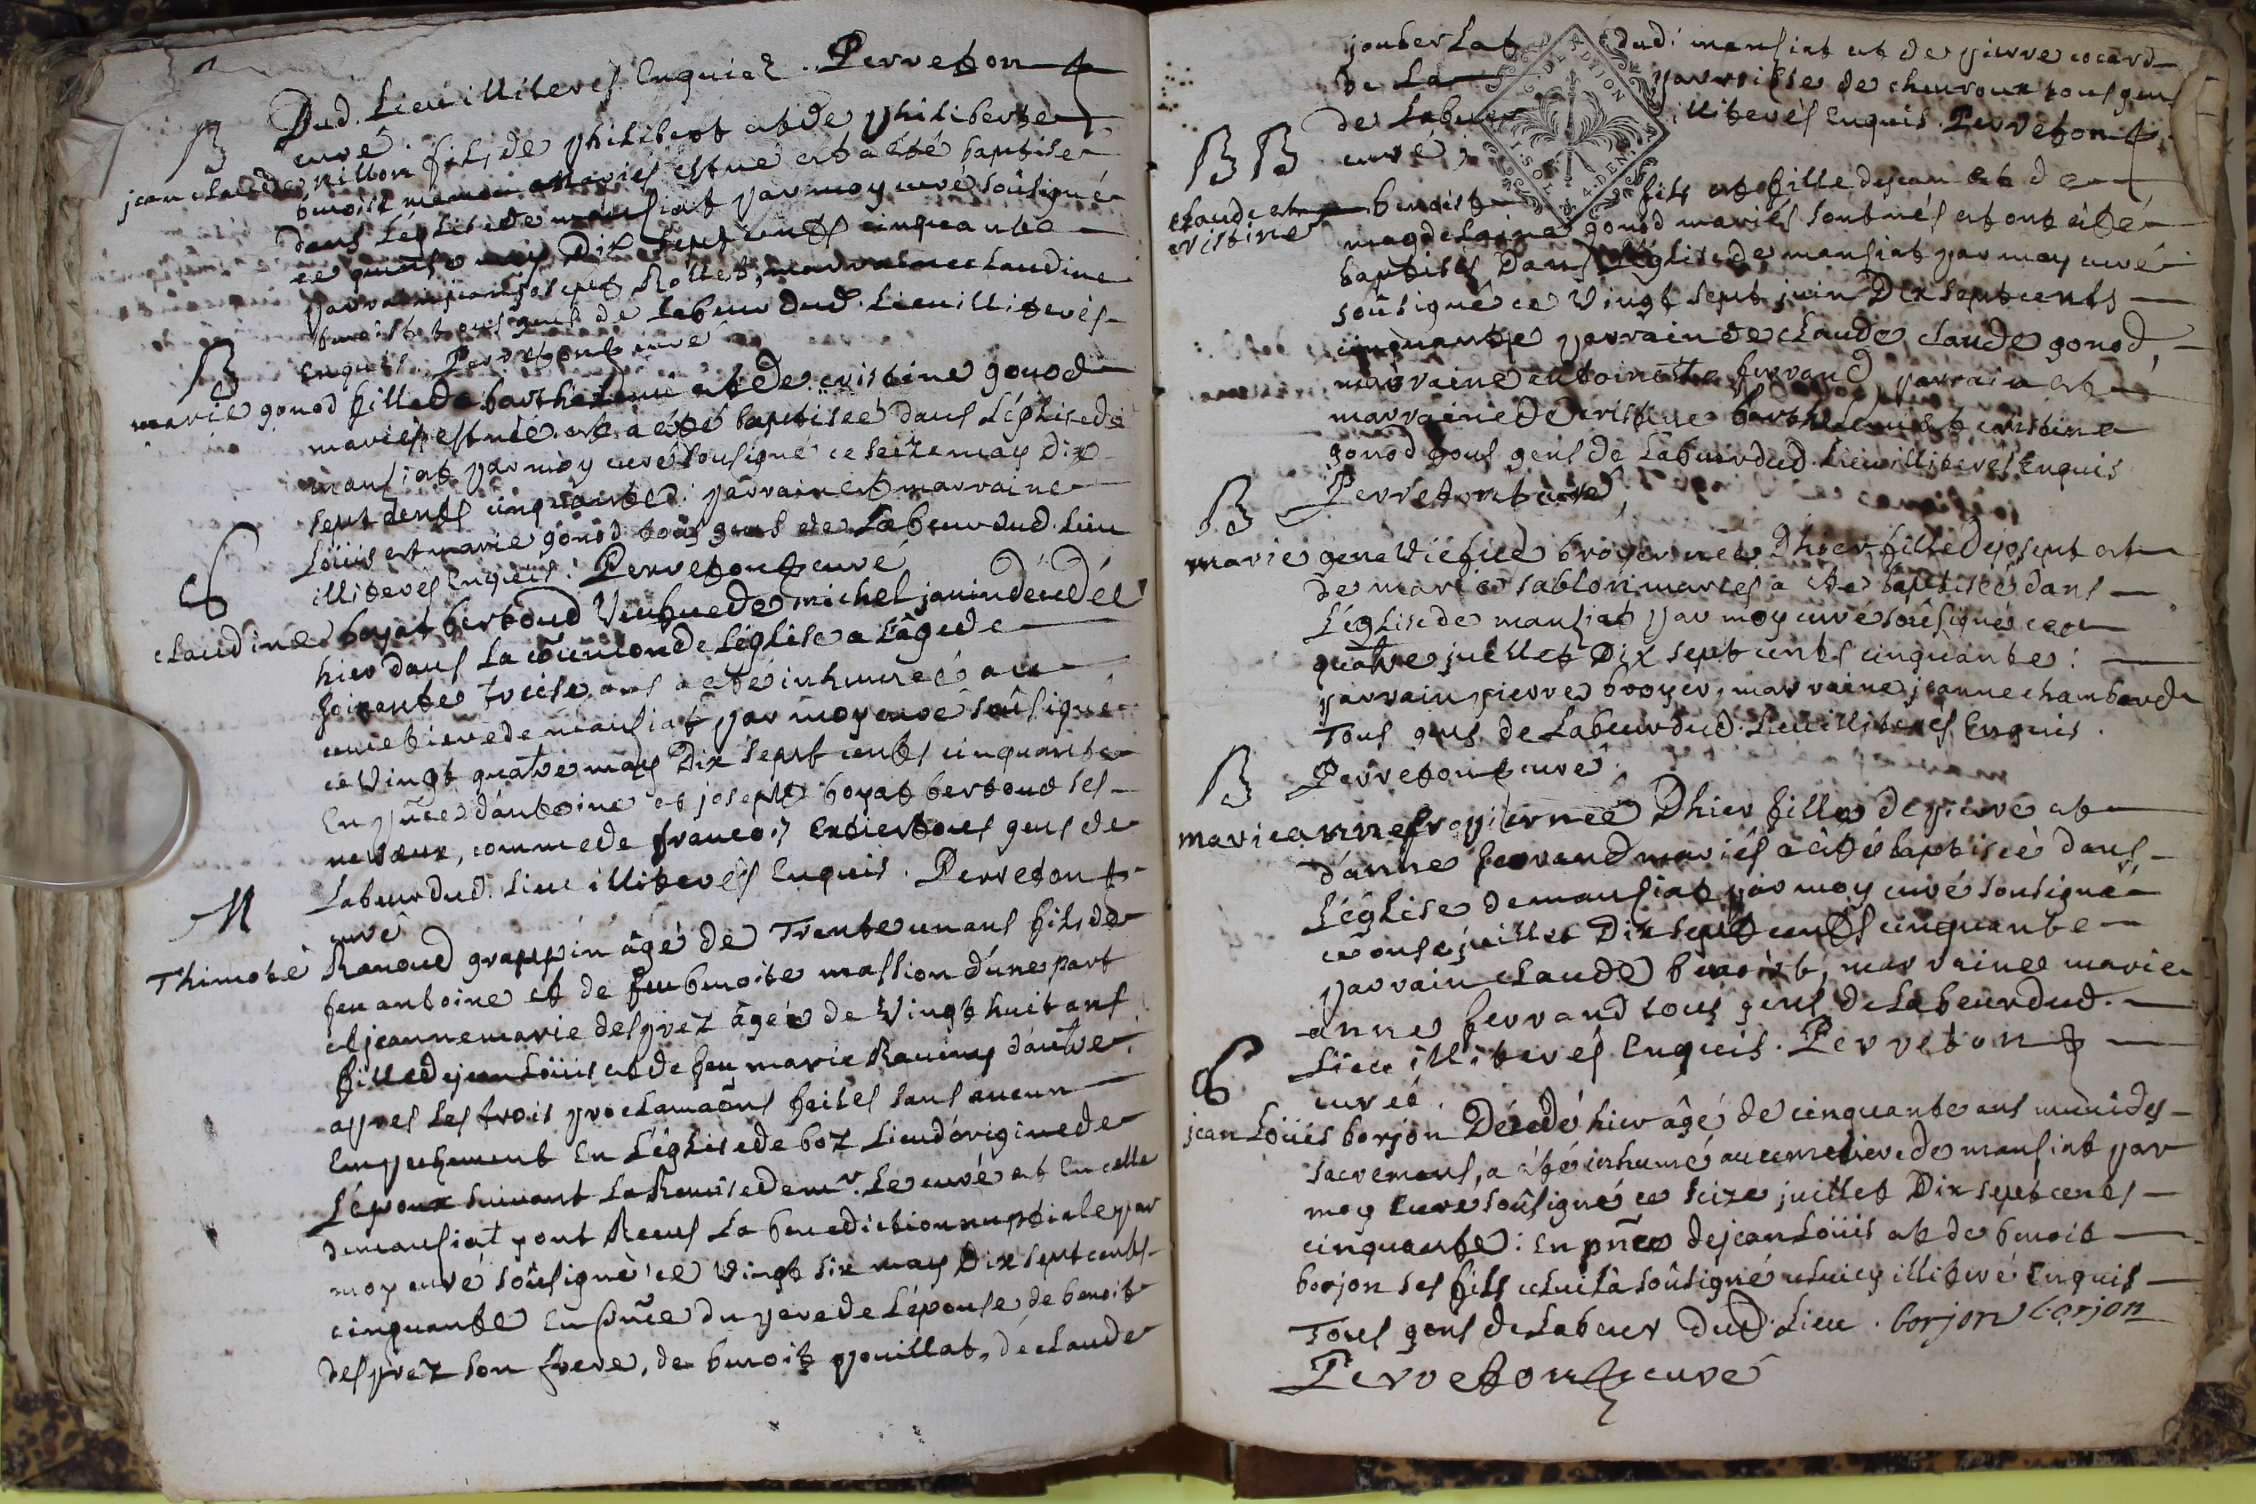 Dud. Lieu illiterés Enquiez. Perreton
curé
B
jean claude nillon fils de philibert et de philiberte
benoist mariés est né et a été baptisé
dans L'église de mansiat par moy curé soûsigné
ce quinse may Dix sept cents cinquante
parrain jean joseph Rollet, marraine claudine
benoist tous gens de Labeur dud. Lieu illiterés
Enquis. Perreton curé
B
marie gonod fille de barthelemi et de cristine gonod
mariés est née et a été baptisée dans L'église de
mansiat par moy curé soûsigné ce seize may Dix
sept cents cinquante: parrain et marraine
Loüis et marie gonod tous gens de Labeur dud. Lieu
illiterés Enquis. Perreton curé
claudine boyat bertoud Veufve de michel janin décédée
hier dans La cõunion de L'église a L'âge de
soixante treise ans a été inhumée au
cimetiere de mansiat par moy curé soûsigné
ce Vingt quatre may Dix sept cents cinquante
En pñce d'antoine et joseph boyat bertoud ses
neveux, comme de francois tous gens de
Labeur dud. Lieu illiterés Enquis. Perreton
curé
M
Thimoté Ranoud grappin âgé de Trente un ans fils de
feu antoine et de feu benoite massion d'une part
et jeanne marie desprez âgée de Vingt huit ans
fille de jean Loüis et de feu marie d'autre
apres Les trois proclamaõns faites sans aucun
Empechement En L'église de boz Lieu d'origine de
L'époux suivant La Remise de mr. Le curé et En celle
de mansiat ont Receus La benediction nuptiale par
moy curé soûsigné ce Vingt six may Dix sept cents
cinquante En pñce du pere de L'épouse de benoit
desprez son frere, de benoit pouillat, de claude
joubert Lat dud. mansiat et de pierre cocard
de La parroisse de chevroux tous gens
de Labeur illiterés Enquis. Perreton
curé,
G. DE DIJON
I. SOL 4. DEN.
B B
claude et cristine benoist fils et fille de jean et de
magdelaine gonod mariés sont nés et ont été
baptisés Dans L'église de mansiat par moy curé
soûsigné ce Vingt sept juin Dix sept cents
cinquante parrain de claude claude gonod,
marraine antoinette ferrand, parrain et
marraine de cristine barthelemi et cristine
gonod tous gens de Labeur dud. Lieu illiterés Enquis
Perreton curé,
B
marie geneviefve broyer née Dhier fille de joseph et
de marie sablon mariés a été baptisée dans
L'église de mansiat par moy curé soûsigné ce
quatre juillet Dix sept cents cinquante:
parrain pierre broyer, marraine jeanne chambard
Tous gens de Labeur dud. Lieu illiterés Enquis.
Perreton curé.
B
marie anne née Dhier fille de pierre et
d'anne ferrand mariés a été baptisée dans
L'église de mansiat par moy curé soûsigné
ce onse juillet Dix sept cents cinquante
parrain claude benoist, marraine marie
anne ferrand tous gens de Labeur dud.
Lieu illiterés Enquis. Perreton
curé.
jean Loüis borjon Décédé hier âgé de cinquante ans muni des
sacremens, a été inhumé au cimetiere de mansiat par
moy Curé soûsigné ce seize juillet Dix sept cents
cinquante: En pñce de jean Loüis et de benoit
borjon ses fils celui là soûsigné celuicy illiteré Enquis
Tous gens de Labeur Dud. Lieu. borjon borjon
Perreton curé